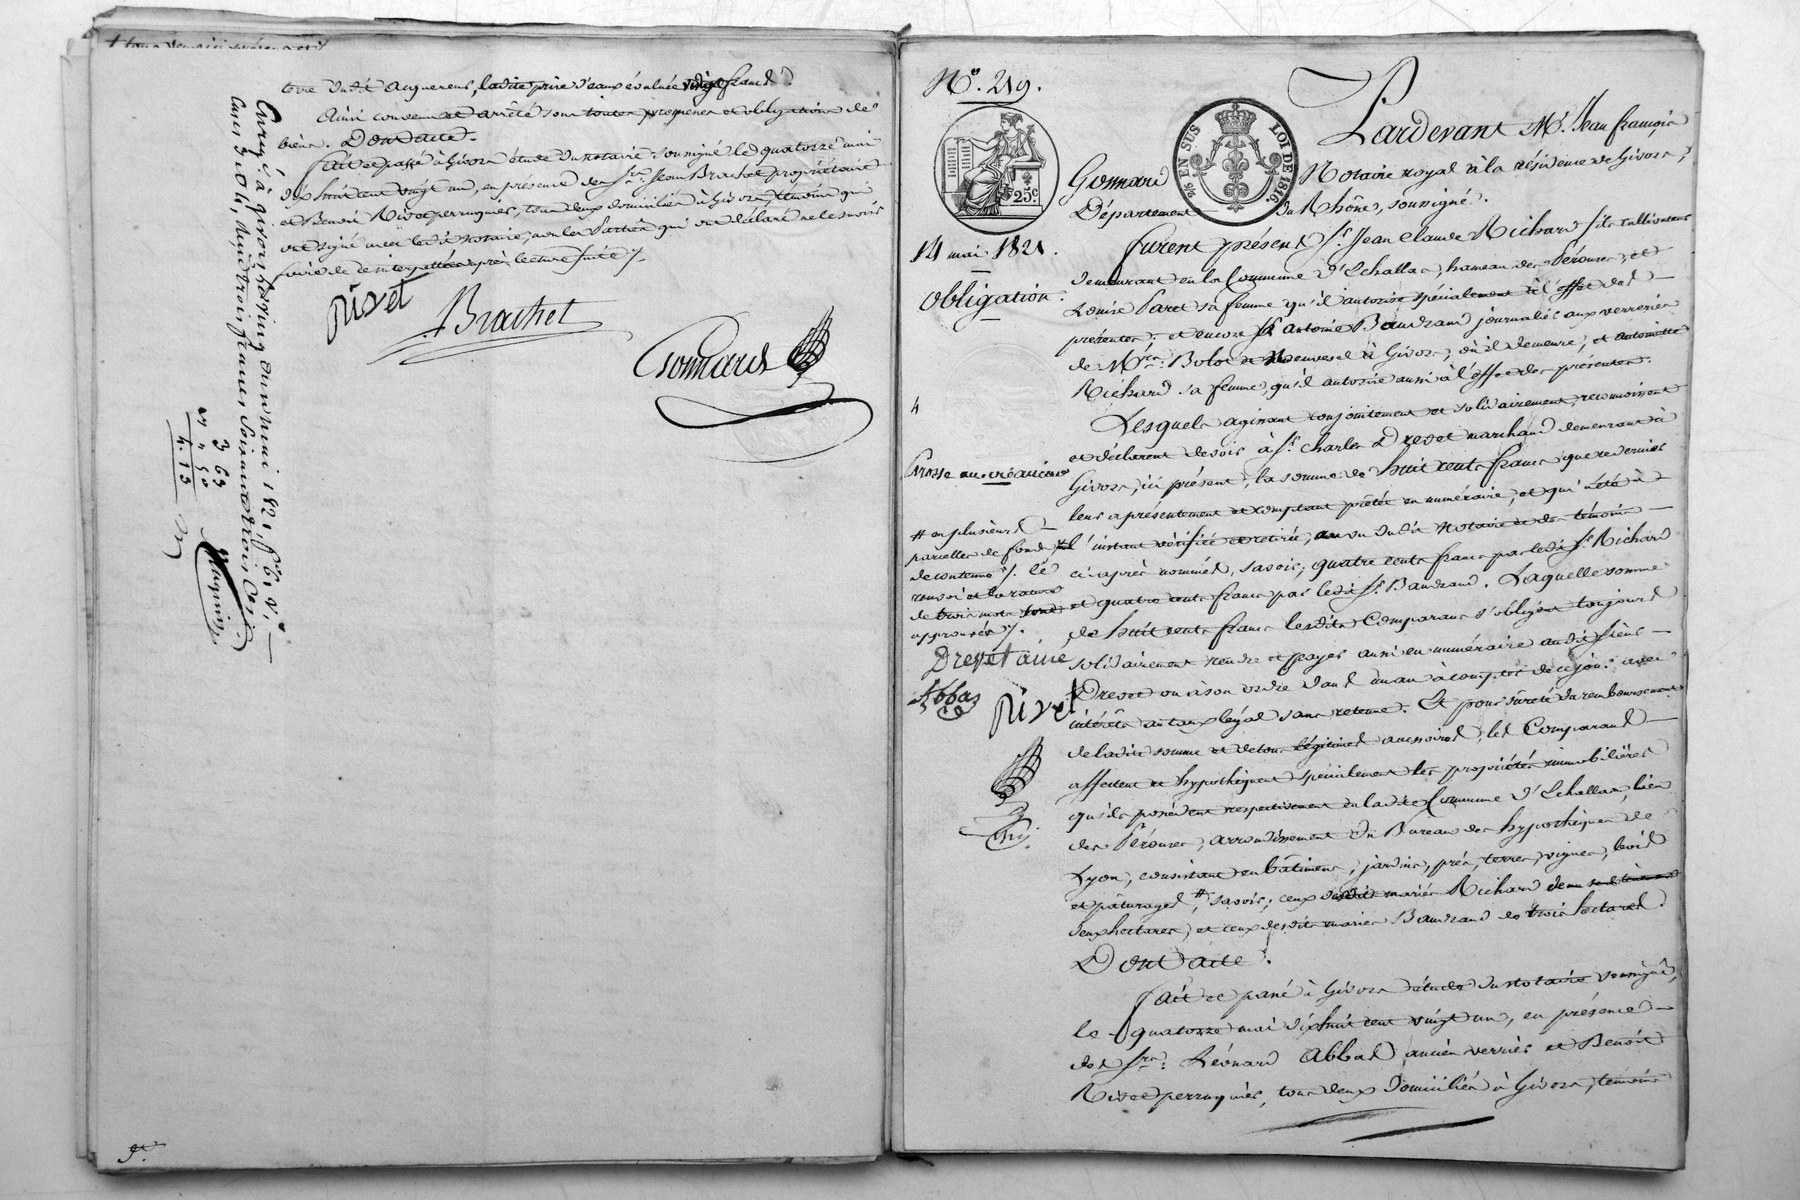 terre dudit acquereur, ladite prise d'eaux évaluée vingt francs.
Ainsi convenu et arrêté sous toutes promesses et obligations de
biens. Dont acte.
Fait et passé à Givors étude du notaire soussigné le quatorze mai
dix huit cent vingt un, en présence des Srs. Jean Brachet propriétaire
et Benoit Rivet perruquier, tous deux domiciliés à Givors, témoins qui
ont signé avec ledit notaire, non les parties qui ont déclaré ne le savoir
faire de ce interpellées après lecture faite /.
Rivet
Brachet
Gonnard
Enreg. à Givors le vingt un mai 1821, fo. 61, Vo.,
trois francs soixante trois c.
3 63
4 50
4. 13
No. 219.
14 mai 1821.
Obligation.
4
Grosse au créancier
# en plusieurs
parcelles de fonds
de contenue /. le
renvoi et la rature
de trois mots
approuvés /.
Drevet ainé
Abbas
Rivet
25c
25 EN SUS
LOI DE 1816
Pardevant Me. Jean françois
Gonnard Notaire royal à la résidence de Givors,
Département du Rhône, soussigné.
Furent présens Sr. Jean Claude Richard fils cultivateur
demeurant en la Commune d'Echallas, hameau des Pérouses, et
Louise Paret sa femme qu'il autorise spécialement à l'effet des
présentes; et encore Sr antoine Baudrand journalier aux verreries
de Mrs. Bolot et Neuvesel à Givors, où il demeure, et antoinette
Richard sa femme, qu'il autorise aussi à l'effet des présentes.
Lesquels agissant conjointement et solidairement, reconnoissent
et déclarent devoir à Sr. Charles Drevet marchand demeurant à
Givors, ici présent, la somme de huit cents francs que ce dernier
leur a présentement et comptant prêtée en numéraire, et qui a été à
l'instant vérifiée et retirée, au vu dudit notaire et des témoins
ci-après nommés, savoir; quatre cents francs par ledit Sr. Richard
et quatre cents francs par ledit Sr. Baudrand. Laquelle somme
de huit cents francs lesdits Comparans s'obligent toujours
solidairement rendre et payer aussi en numéraire audit Sieur
Drevet ou à son ordre dans un an à compter de ce jour avec
intérêts au taux légal sans retenue. Et pour sûreté du remboursement
de ladite somme et de tous légitimes accessoires, les Comparans
affectent et hypothèquent spécialement les propriétés immobilières
qu'ils possèdent respectivement en ladite Commune d'Echallas, lieu
des Pérouses, arrondissement du Bureau des hypothèques de
Lyon, consistant en bâtimens, jardins, prés, terres, vignes, bois
et pâturages, # savoir; ceux desdits mariés Richard
deux hectares, et ceux desdits mariés Baudrand de trois hectares.
Dont acte.
Fait et passé à Givors étude du notaire soussigné,
le quatorze mai dix huit cent vingt un, en présence
des Srs. Léonard Abbas ancien verrier et Benoit
Rivet perruquier, tous deux domiciliés à Givors, témoins